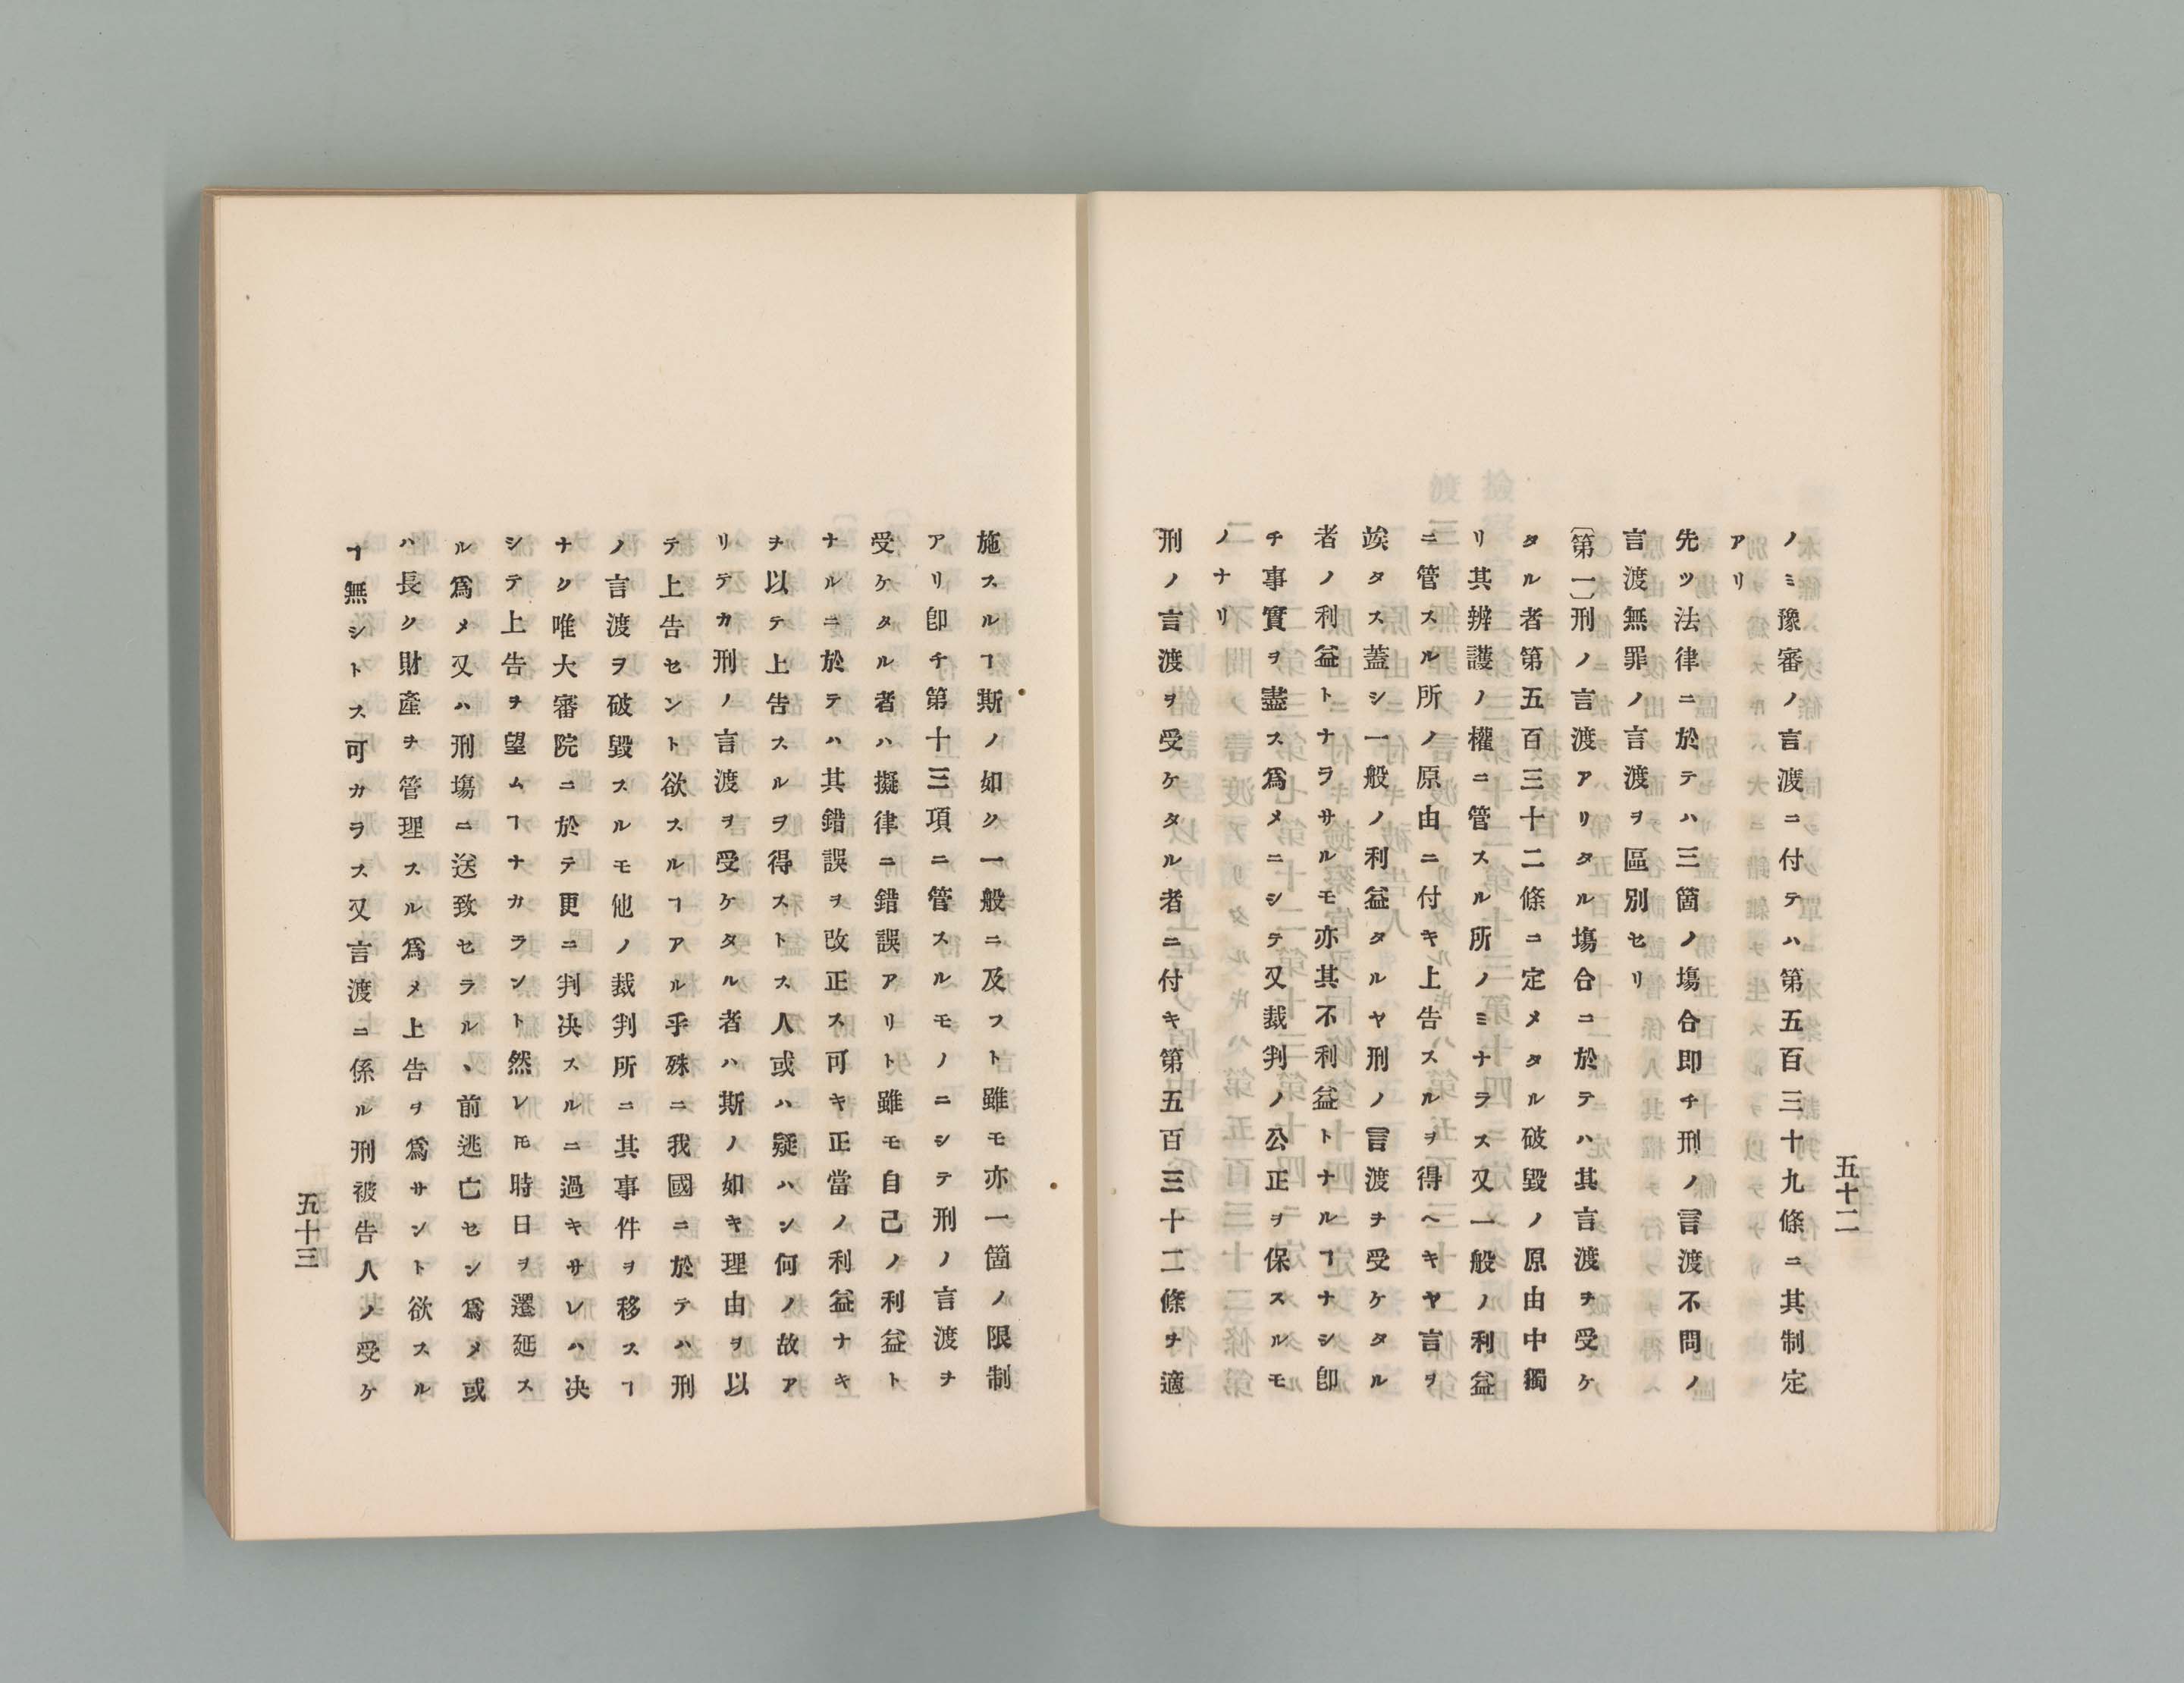 五十二
ノミ豫審ノ言渡ニ付テハ第五百三十九條ニ其制定
アリ
先ッ法律ニ於テハ三箇ノ塲合即チ刑ノ言渡不問ノ
言渡無罪ノ言渡ヲ區別セリ
〔第一〕刑ノ言渡アリタル塲合コ於テハ其言渡ヲ受ケ
タル者第五百三十二條コ定メタル破毀ノ原由中獨
リ其辨護ノ權ニ管スル所ノミナラス又一般ノ利益
ニ管スル所ノ原由ニ付キ上告スルヲ得ヘキヤ言ヲ
竢タス蓋シ一般ノ利益タルヤ刑ノ言渡ヲ受ケタル
者ノ利益トナラサルモ亦其不利益トナルヿナシ卽
チ事實ヲ盡ス爲メニシテ又裁判ノ公正ヲ保スルモ
ノナリ
刑ノ言渡ヲ受ケタル者ニ付キ第五百三十二條ヲ適
施スルヿ斯ノ如ク一般ニ及フト雖モ亦一箇ノ限制
アリ卽チ第十三項ニ管スルモノニシテ刑ノ言渡ヲ
受ケタル者ハ擬律ニ錯誤アリト雖モ自己ノ利益ト
ナルニ於テハ其錯誤ヲ改正ス可キ正當ノ利益ナキ
ヲ以テ上告スルヲ得ストス人或ハ疑ハン何ノ故ア
リテカ刑ノ言渡ヲ受ケタル者ハ斯ノ如キ理由ヲ以
テ上告セント欲スルヿアル乎殊ニ我國ニ於テハ刑
ノ言渡ヲ破毀スルモ他ノ裁判所ニ其事件ヲ移スヿ
ナク唯大審院ニ於テ更ニ判决スルニ過キサレハ决
シテ上告ヲ望ムヿナカラント然レ𪜈時日ヲ遷延ス
ル爲メ又ハ刑塲ニ送致セラルヽ前逃亡セン爲メ或
ハ長ク財產ヲ管理スル爲メ上告ヲ爲サント欲スル
ヿ無シトス可カラス又言渡コ係ル刑被告人ノ受ケ
五十三